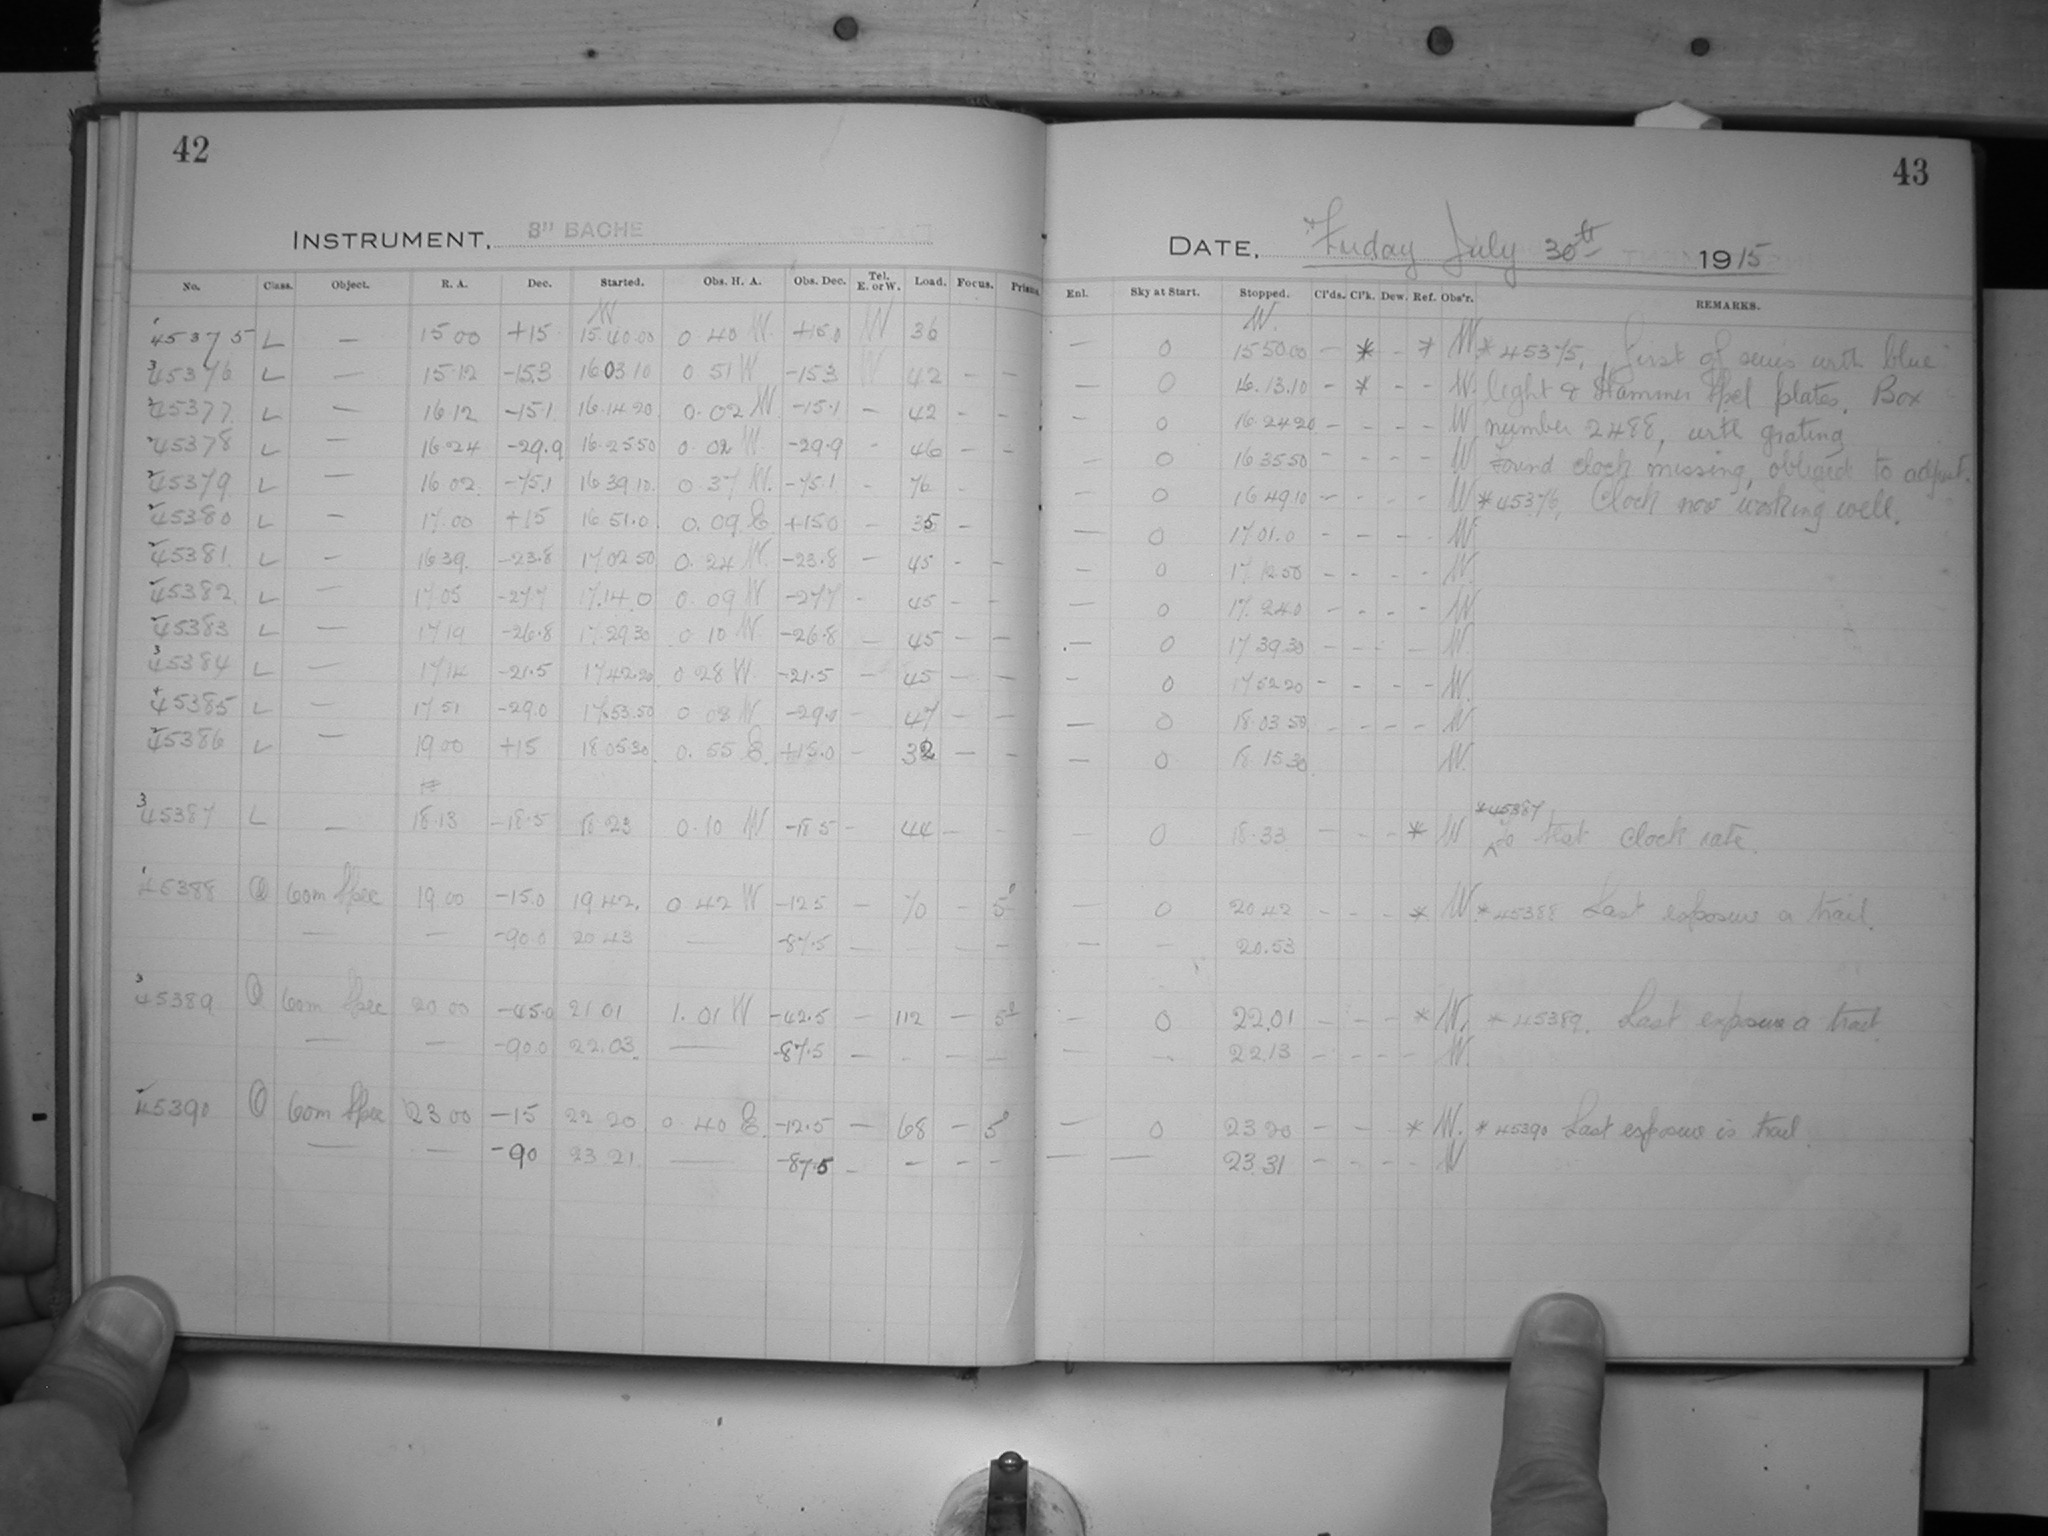 42
INSTRUMENT, 8" BACHE
No. Class. Object. R. A. Dec. Started. Obs. H. A. Obs. Dec. Tel. E. or W. Load. Focus. Prisms.
W
45375 L — 15 00 +15 15.40.00 0.40 W. +15.0 W 36
45376 L — 15 12 -15.3 16 03 10 0.51 W -15.3 W 42 - -
45377 L — 16 12 -15.1 16.14 20 0.02 W -15.1 - 42 - -
45378 L — 16 24 -29.9 16.25 50 0.02 W. -29.9 - 46 - -
45379 L — 16 02 -75.1 16 39 10 0.37 W. -75.1 - 76 -
45380 L — 17.00 +15 16 51.0 0.09 E +15.0 - 35 -
45381 L — 16 39 -23.8 17 02 50 0.24 W. -23.8 - 45 - -
45382 L — 17 05 -27.7 17.14.0 0.09 W -27.7 - 45 - -
45383 L — 17 19 -26.8 17.29.30 0 10 W. -26.8 - 45 - -
45384 L — 17 14 -21.5 17 42.20 0 28 W. -21.5 - 45 - -
45385 L — 17 51 -29.0 17.53.50 0.03 W -29.0 - 47 - -
45386 L — 19 00 +15 18 05 30 0.55 E. +15.0 - 32 - -
45387 L — 18.13 -18.5 18 23 0.10 W -18.5 - 44 - -
45388 Q Com Spec 19.00 -15.0 19 42. 0 42 W -12.5 - 70 - 5°
— — -90.0 20 43 — -87.5 — — — —
45389 Q Com Spec 20 00 -45.0 21 01 1.01 W -42.5 — 112 — 5°
— — -90.0 22.03 — -87.5 — - — —
45390 Q Com Spec 23 00 -15 22 20 0 40 E. -12.5 — 68 — 5°
— — -90 23 21 — -87.5 - - - -
43
DATE, Friday July 30th 1915
Enl. Sky at Start. Stopped. Cl'ds. Cl'k. Dew. Ref. Obs'r. REMARKS.
W.
— 0 15 50 00 - * - * W. * 45375, First of series with blue
— 0 16.13.10 - * - - W. light & Hammer Spec plates. Box
— 0 16 24 20 - - - - W number 2488, with grating
— 0 16 35 50 - - - - W Found clock missing, obliged to adjust.
— 0 16 49 10 - - - - W * 45376, Clock now working well.
— 0 17 01.0 - - - - W.
— 0 17 12 50 - - - - W.
— 0 17. 24.0 - - - - W.
— 0 17 39 30 - - - - W.
- 0 17 52 20 - - - - W.
— 0 18.03 50 - - - - W.
— 0 18.15 30 W.
* 45387
— 0 18.33 - - - * W to test clock rate.
— 0 20 42 - - - * W. * 45388 Last exposure a trail.
— - 20.53
— 0 22.01 - - - * W. * 45389. Last exposure a trail.
— - 22.13 - - - - W.
— 0 23 20 - - - * W. * 45390 Last exposure is trail.
— — 23.31 - - - - W